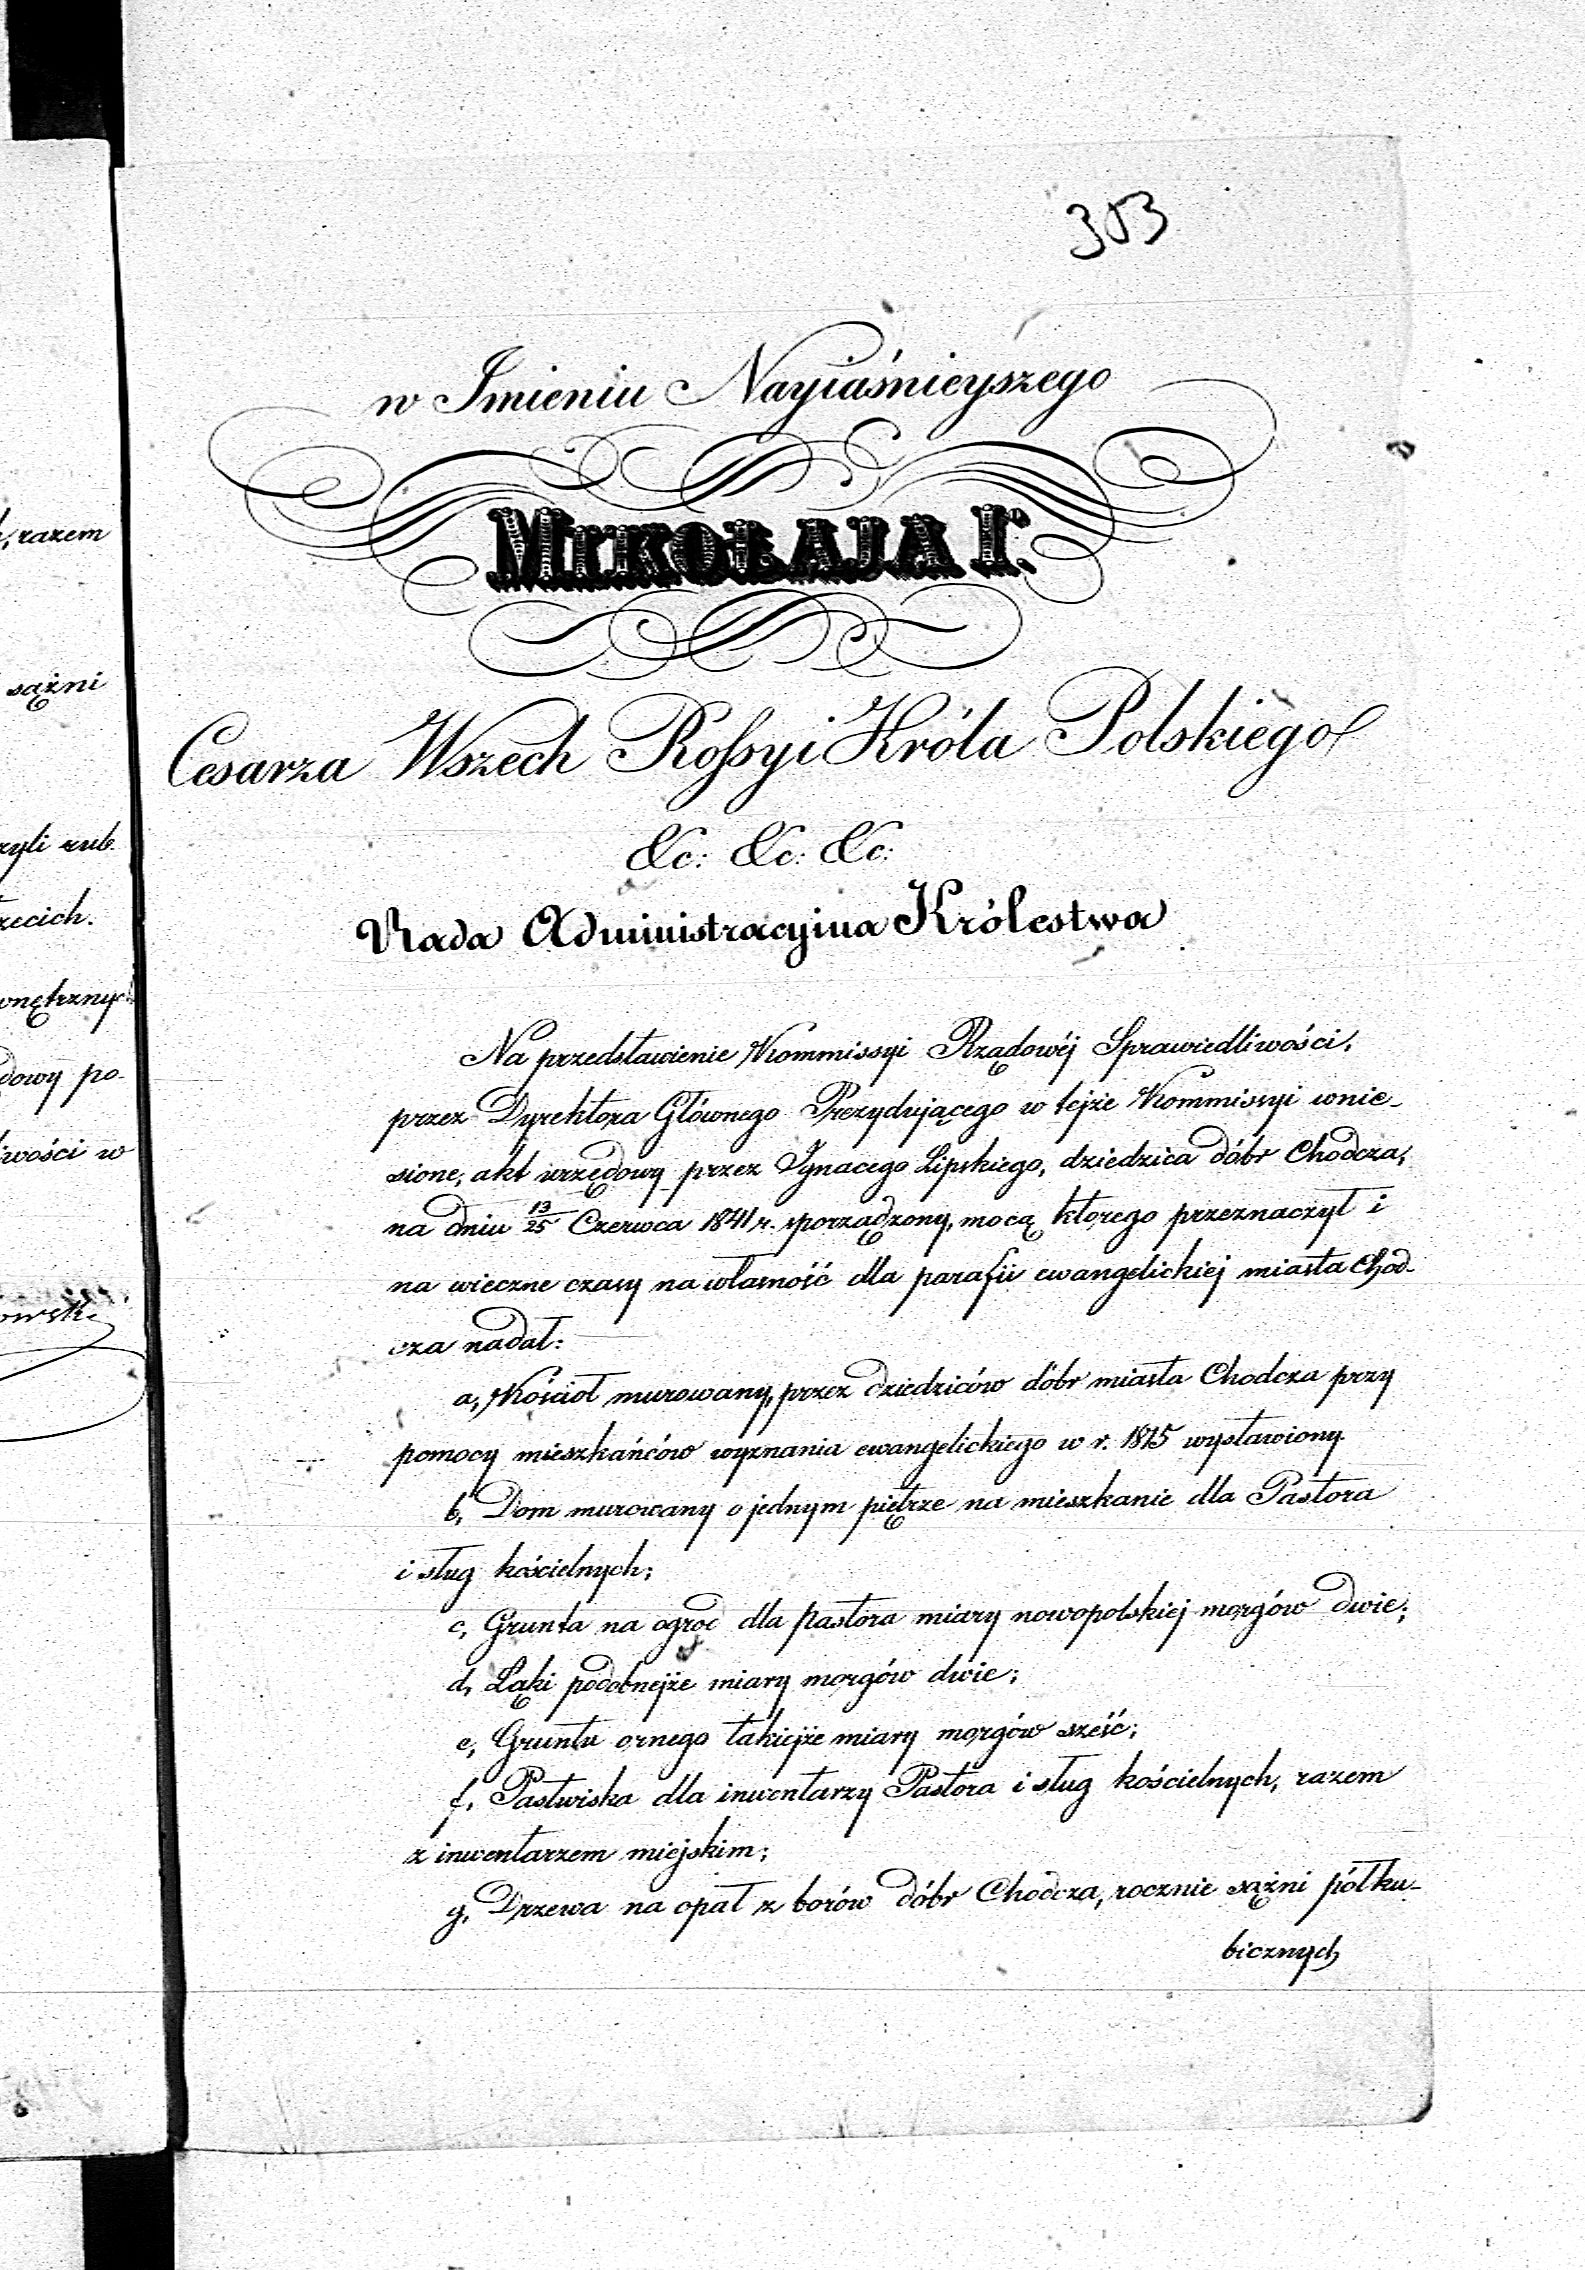 303
w Imieniu Nayiaśnieyszego
MIKOŁAJA I.
Cesarza Wszech Rossyi Króla Polskiego
&c: &c: &c:
Rada Administracyina Królestwa
Na przedstawienie Kommissyi Rządowéj Sprawiedliwości,
przez Dyrektora Głównego Prezydującego w tejże Kommissyi wnie-
sione, akt urzędowy przez Ignacego Lipskiego, dziedzica dóbr Chodcza,
na dniu 13/25 Czerwca 1841 r. sporządzony, mocą którego przeznaczył i
na wieczne czasy na własność dla parafii ewangelickiej miasta Chod-
cza nadał:
a, Kościoł murowany, przez dziedziców dóbr miasta Chodcza przy
pomocy mieszkańców wyznania ewangelickiego w r. 1815 wystawiony
b, Dom murowany o jednym piętrze na mieszkanie dla Pastora
i sług kościelnych;
c, Grunta na ogrod dla pastora miary nowopolskiej morgów dwie;
d, Łąki podobnejże miary morgów dwie;
e, Gruntu ornego takiejże miary morgów sześć;
f, Pastwiska dla inwentarzy Pastora i sług kościelnych, razem
z inwentarzem miejskim;
g, Drzewa na opał z borów dóbr Chodcza, rocznie sążni półku-
bicznych
razem
sążni
rub.
po-
w